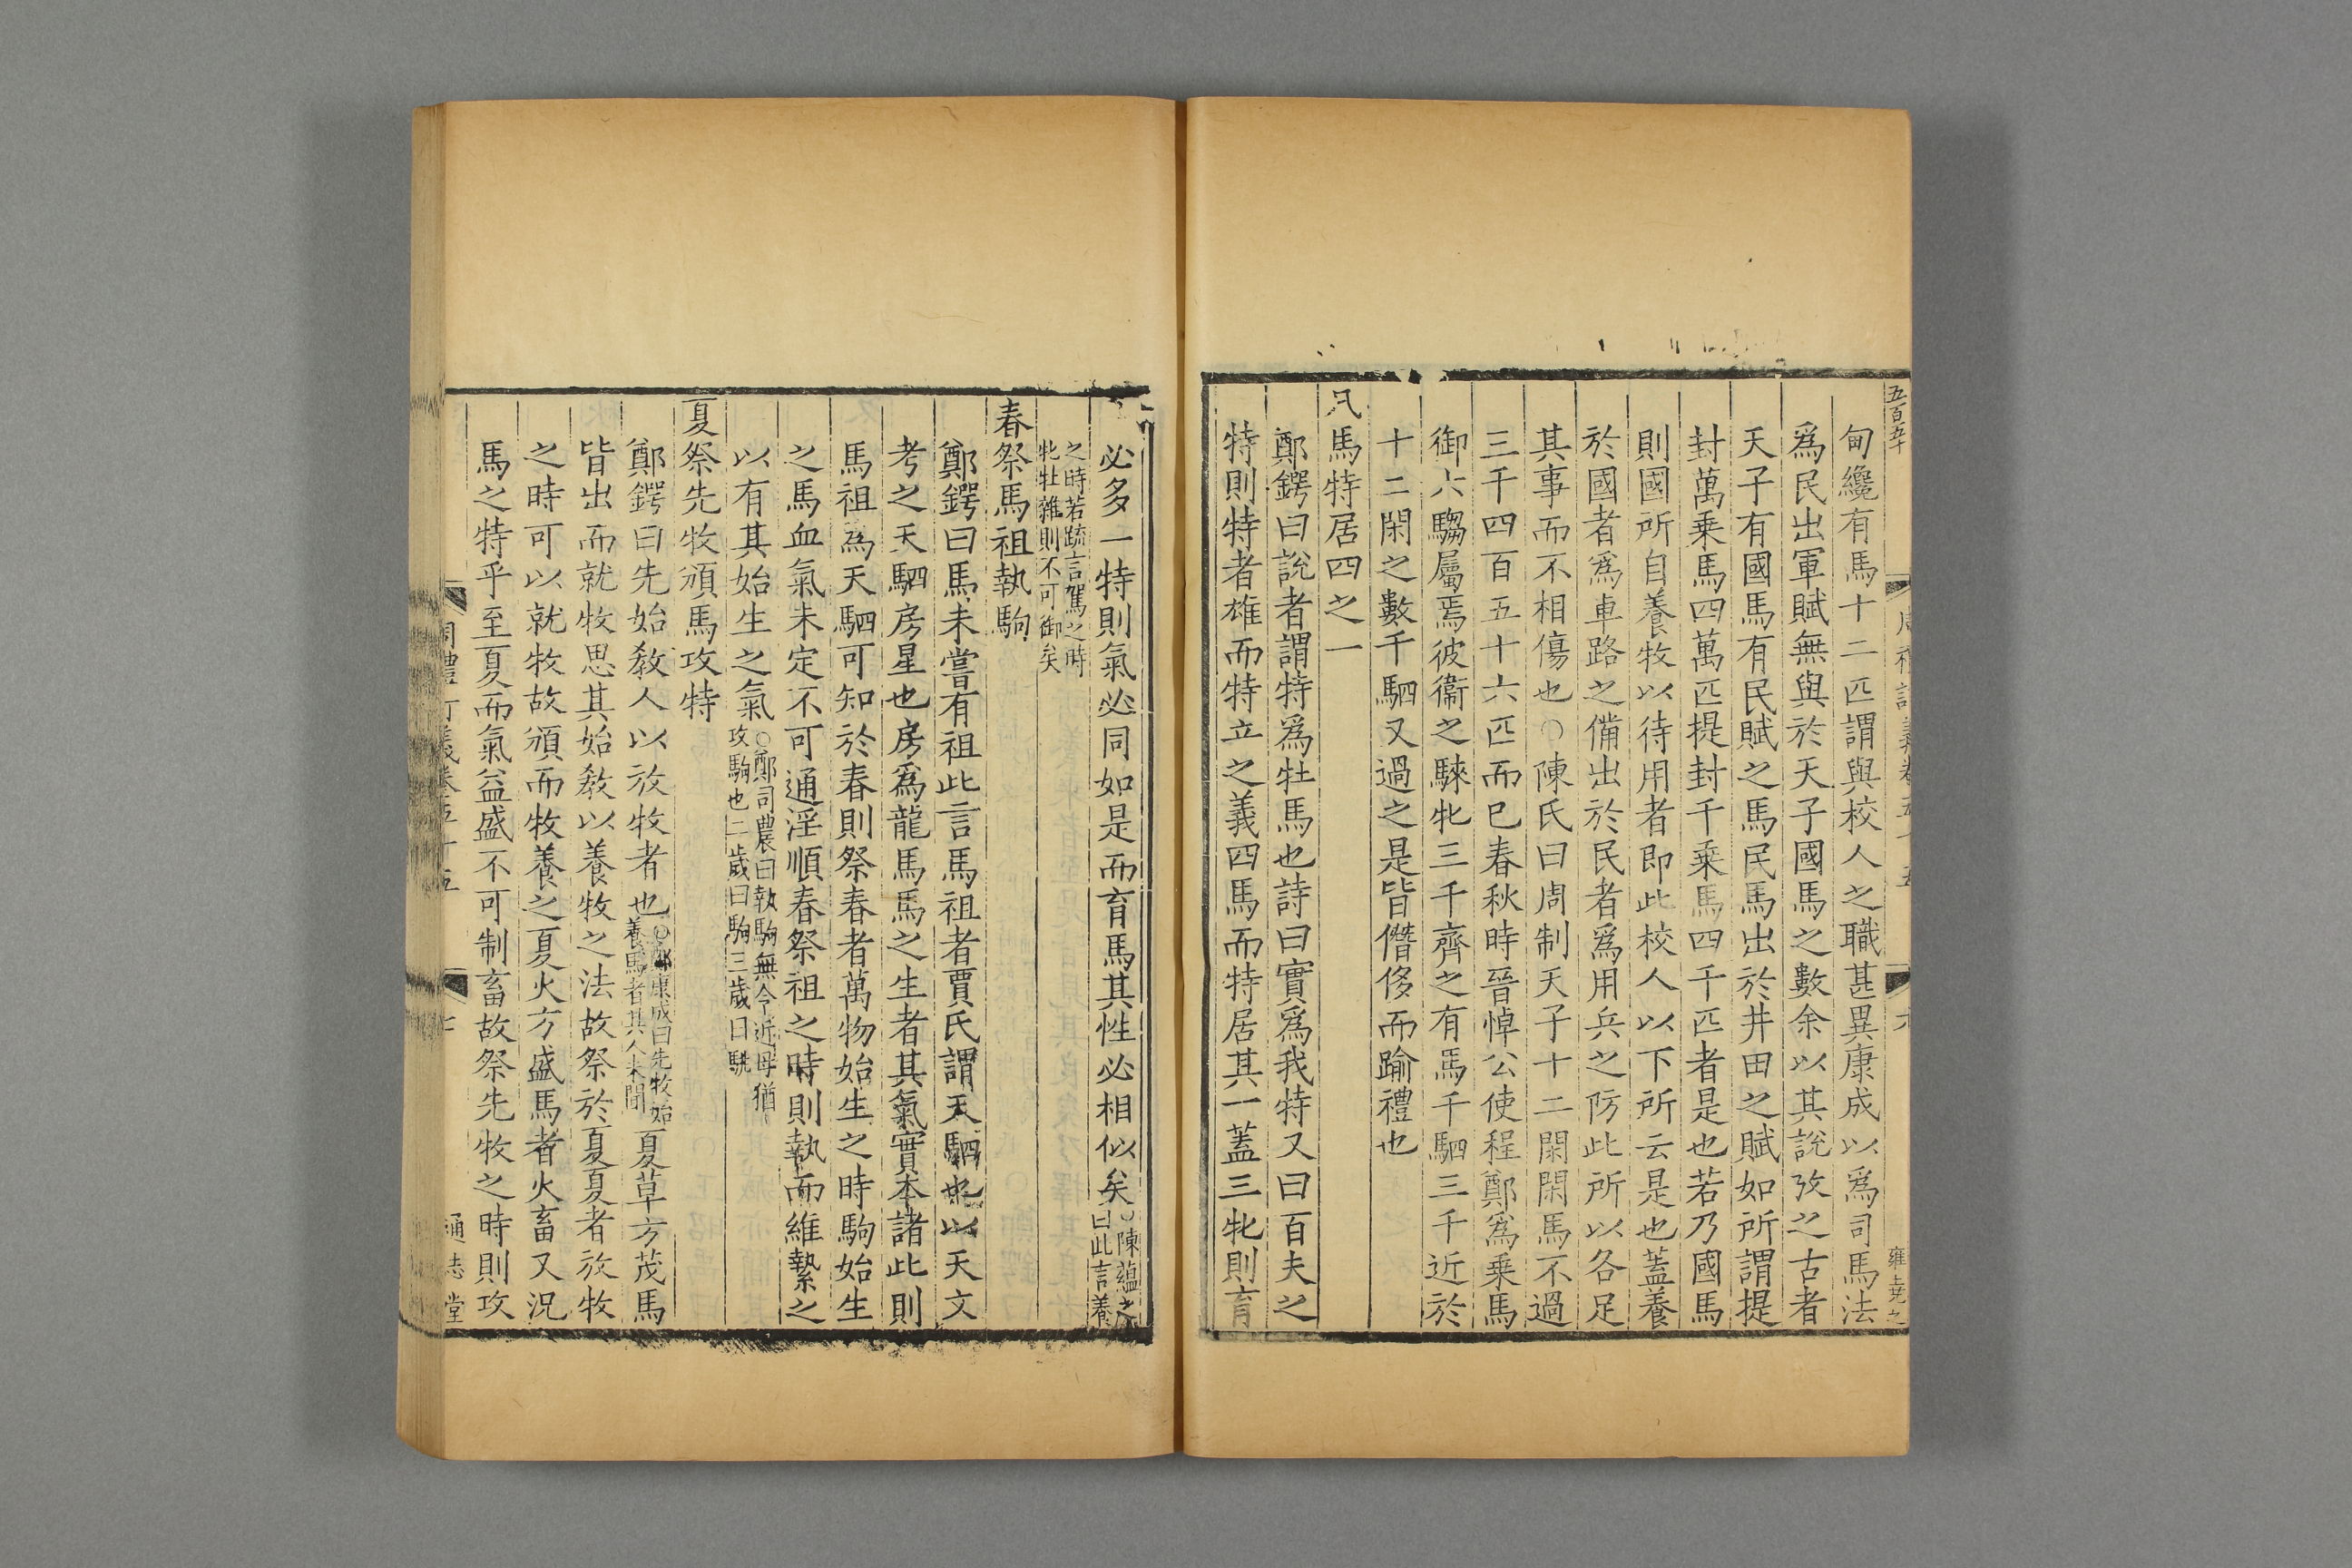 五百五十
甸纔有馬十二匹謂與校人之職甚異康成以爲司馬法
爲民出軍賦無與於天子國馬之數余以其說攷之古者
天子有國馬有民賦之馬民馬出於井田之賦如所謂提
封萬乗馬四萬匹提封千乗馬四千匹者是也若乃國馬
則國所自養牧以待用者即此校人以下所云是也蓋養
於國者爲車路之備出於民者爲用兵之防此所以各足
其事而不相傷也○陳氏曰周制天子十二閑閑馬不過
三千四百五十六匹而已春秋時晉悼公使程鄭爲乗馬
御六騶屬焉彼衞之騋牝三千齊之有馬千駟三千近於
十二閑之數千駟又過之是皆僭侈而踰禮也
凡馬特居四之一
鄭鍔曰說者謂特爲牡馬也詩曰實爲我特又曰百夫之
特則特者雄而特立之義四馬而特居其一蓋三牝則育
必多一特則氣必同如是而育馬其性必相似矣○陳蘊之
曰此言養
之時若䟽言駕之時
牝牡雜則不可御矣
春祭馬祖執駒
鄭鍔曰馬未嘗有祖此言馬祖者賈氏謂天駟也以天文
考之天駟房星也房爲龍馬馬之生者其氣實本諸此則
馬祖爲天駟可知於春則祭春者萬物始生之時駒始生
之馬血氣未定不可通淫順春祭祖之時則執而維縶之
以有其始生之氣○鄭司農曰執駒無令近母猶
攻駒也二歲曰駒三歲曰駣
夏祭先牧頒馬攻特
鄭鍔曰先始敎人以放牧者也○鄭康成曰先牧始
養馬者其人未聞夏草方茂馬
皆出而就牧思其始敎以養牧之法故祭於夏夏者放牧
之時可以就牧故頒而牧養之夏火方盛馬者火畜又况
馬之特乎至夏而氣益盛不可制畜故祭先牧之時則攻
通志堂